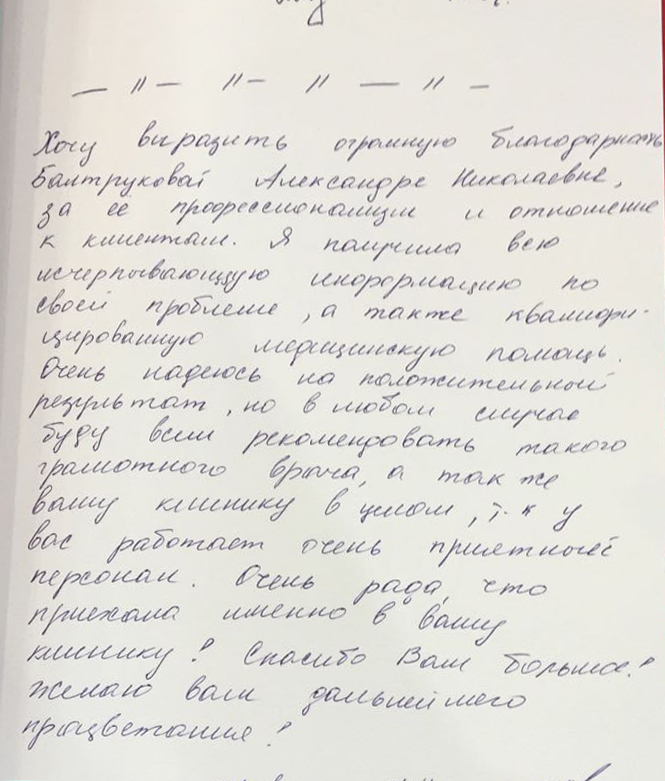 — " — " — " — " —
Хочу выразить огромную благодарность
Балтруковай Александре Николаевне,
за её профессионализм и отношение
к клиентам. Я получила всю
исчерпывающую информацию по
своей проблеме, а также квалифи-
цированную медицинскую помощь.
Очень надеюсь на положительный
результат, но в любом случае
буду всем рекомендовать такого
грамотного врача, а так же
вашу клинику в целом, т. к у
вас работает очень приятный
персонал. Очень рада, что
приехала именно в вашу
клинику! Спасибо Вам большое!
Желаю вам дальнейшего
процветания!